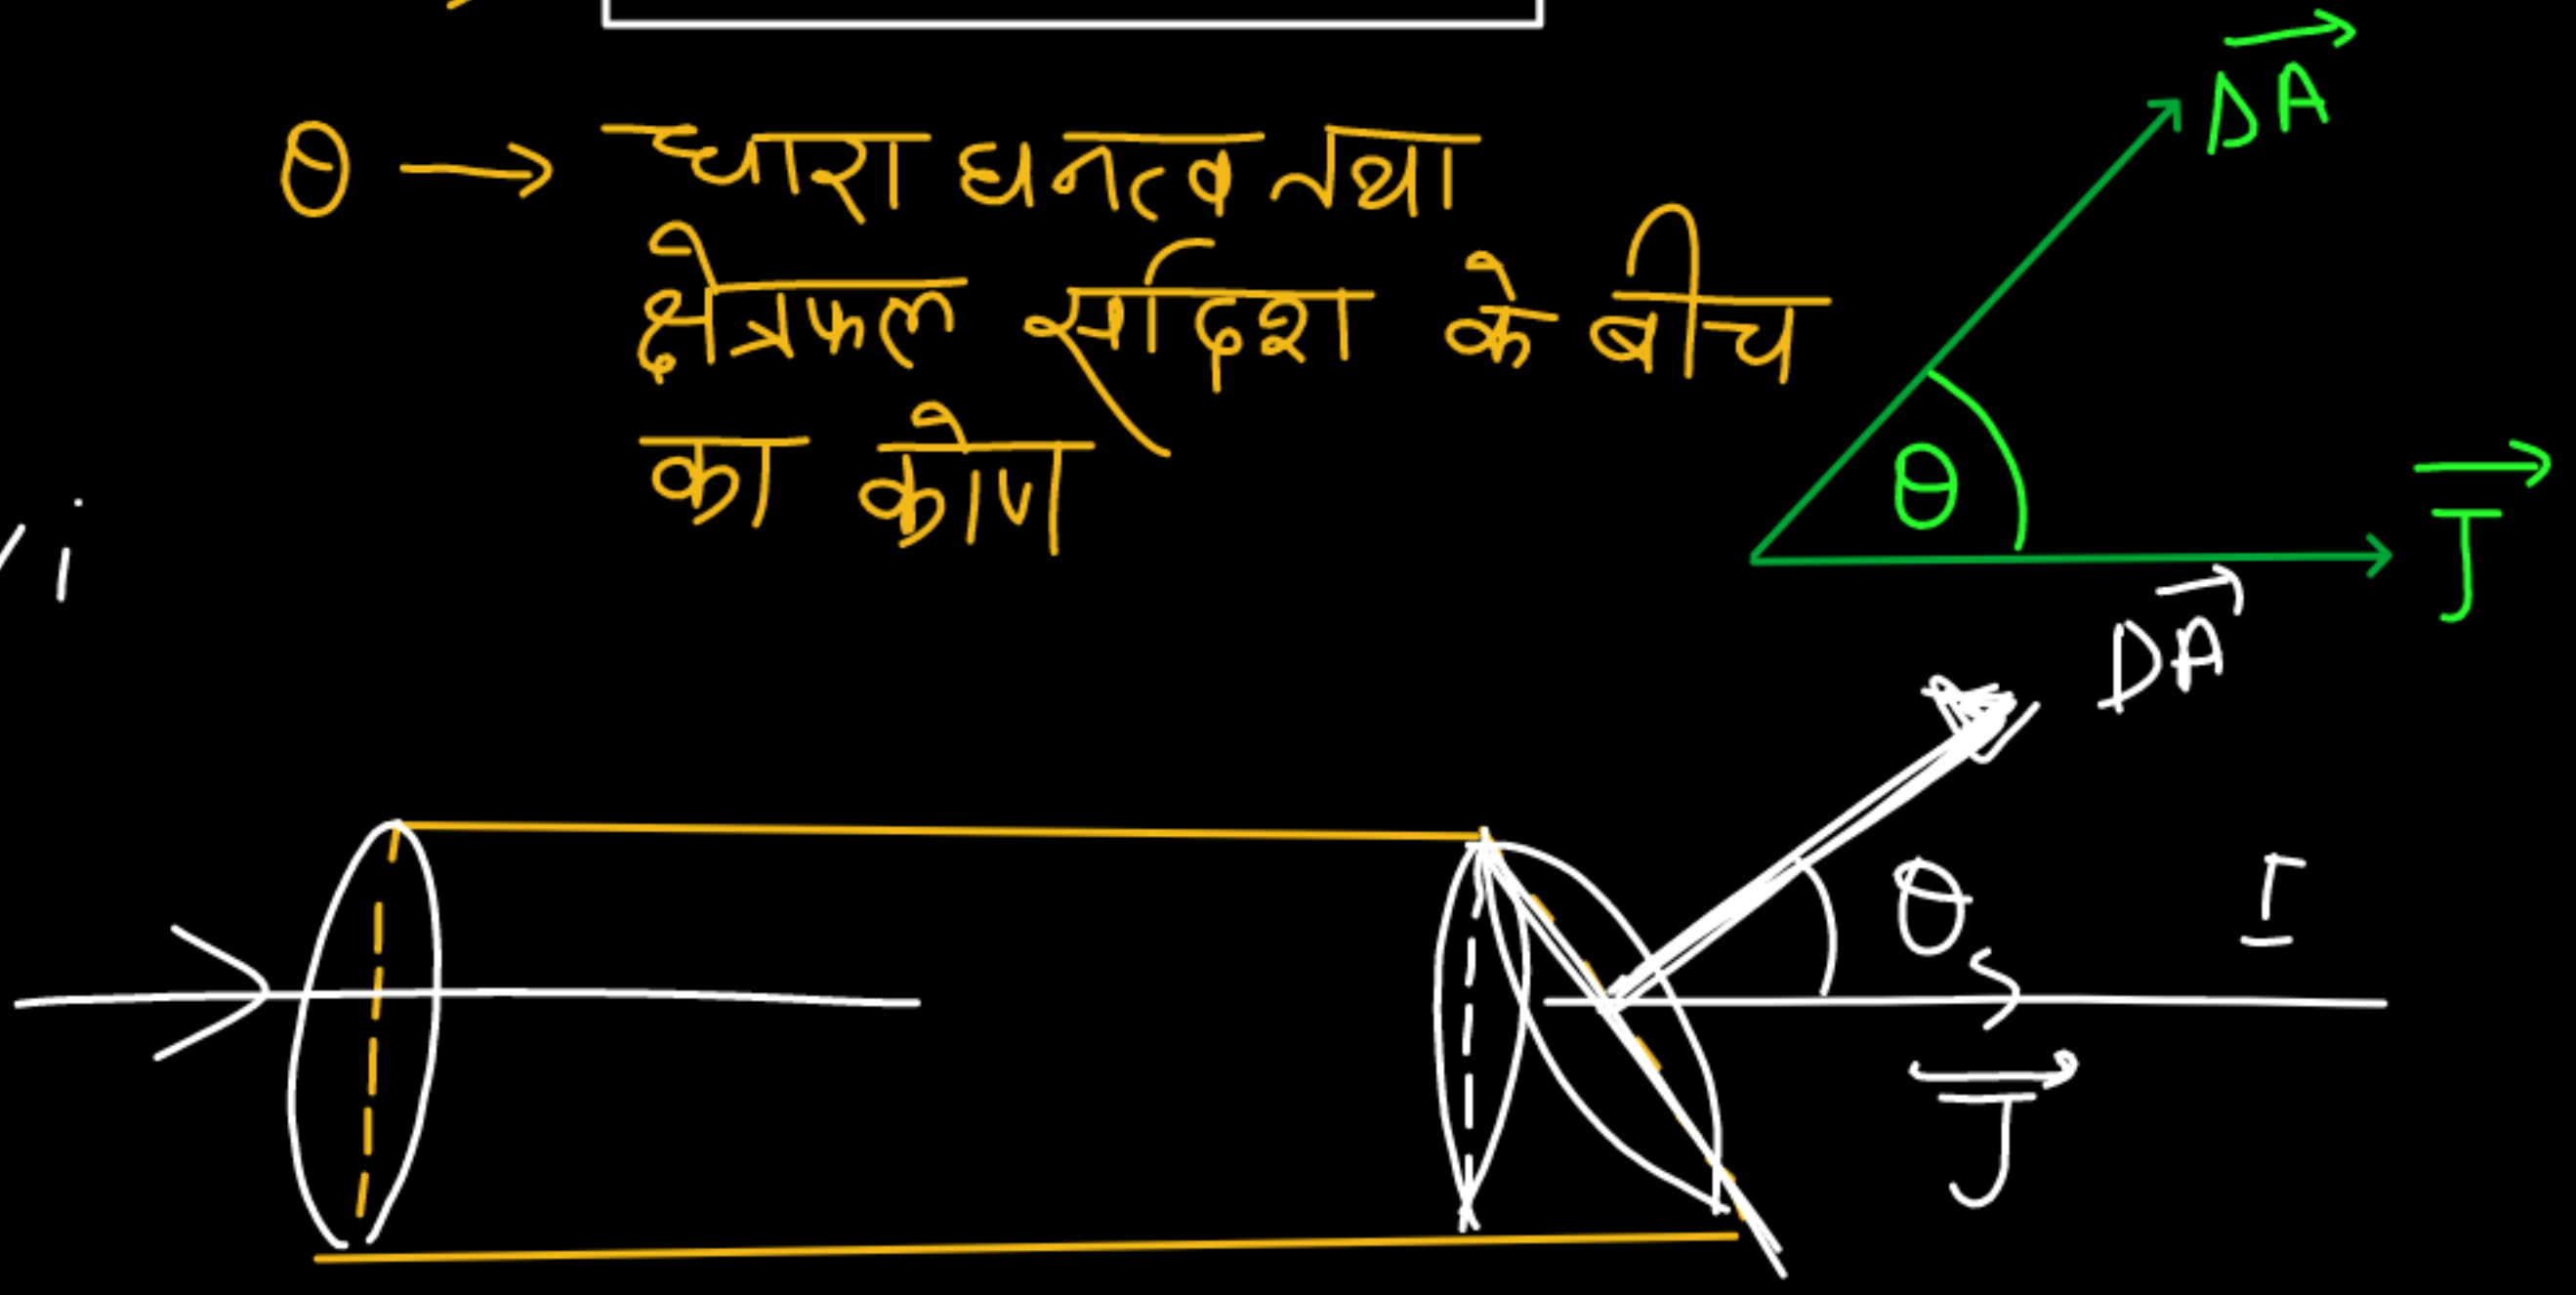 θ → धारा घनत्व तथा
क्षेत्रफल सदिश के बीच
का कोण
ΔA
θ
J
i
ΔA
θ
I
J